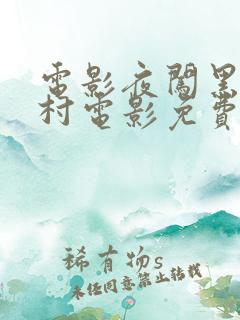 電影夜闖黑
村電影免費
稀有物s
未经同意禁止转载